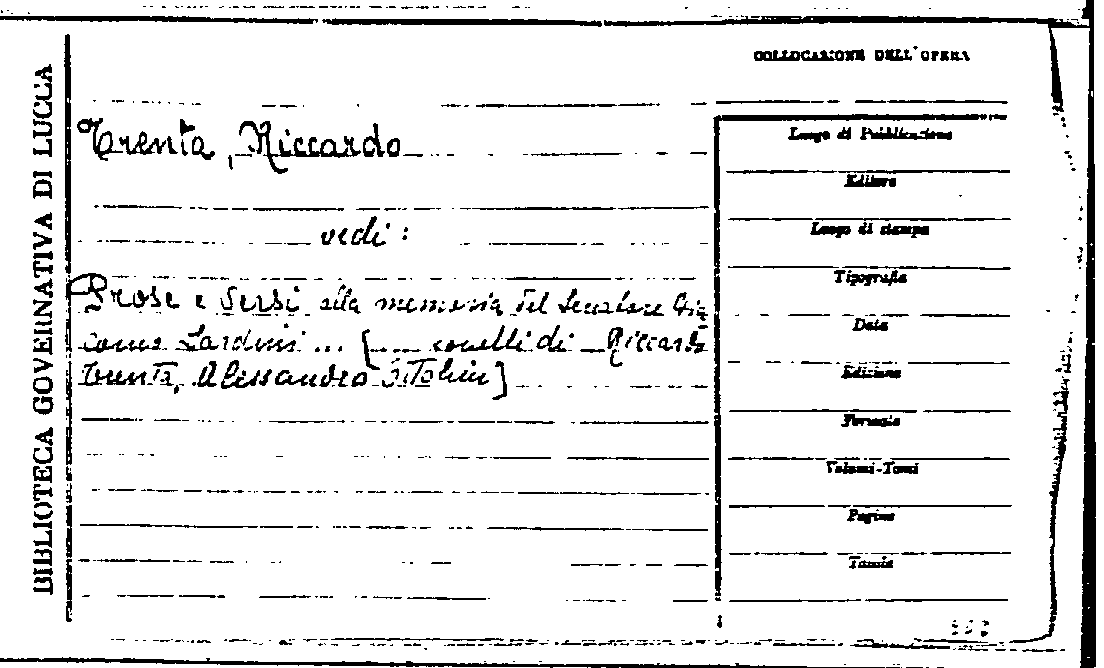 BIBLIOTECA GOVERNATIVA DI LUCCA
COLLOCAZIONE DELL'OPERA
Trenta, Riccardo
vedi:
Prose e versi alla memoria del Senatore Gia
como Sardini ... [... sonetti di Riccardo
Trenta, Alessandro
Luogo di Pubblicazione
Editore
Luogo di stampa
Tipografia
Data
Edizione
Formato
Volumi-Tomi
Pagine
Tavole